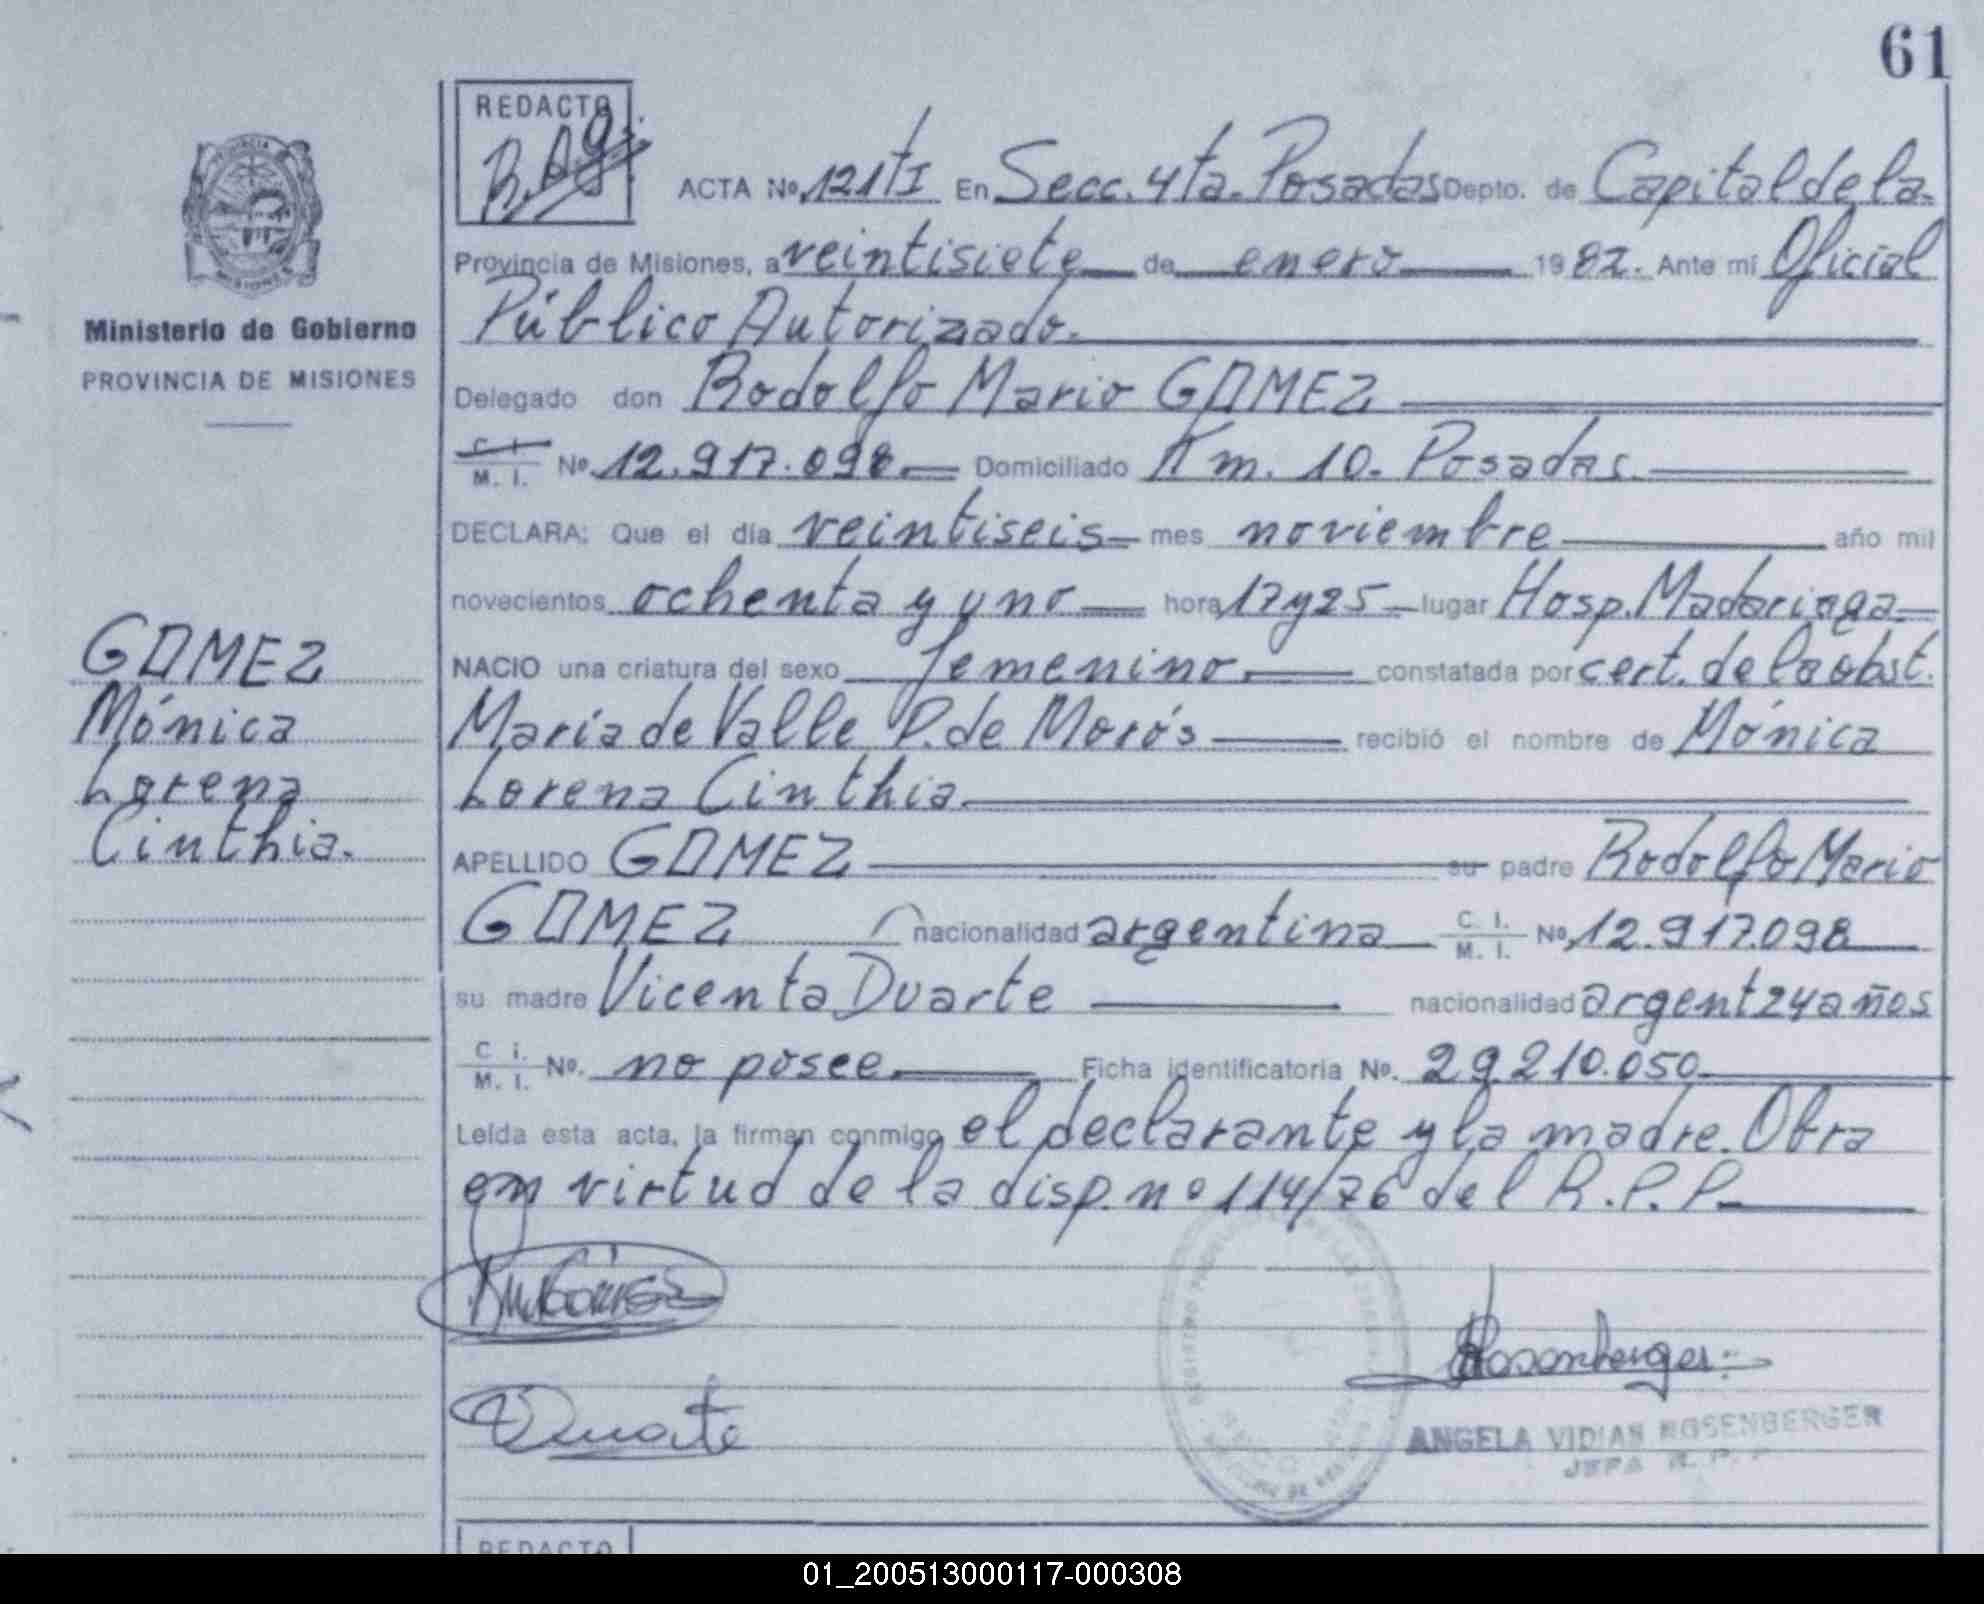 61
REDACTO
R.A.g.
ACTA No. 121 tI En Secc. 4ta. Posadas Depto. de Capital de la
Provincia de Misiones, a veintisiete de enero 1982. Ante mí Oficial
Público Autorizado.
Ministerio de Gobierno
PROVINCIA DE MISIONES
Delegado don Rodolfo Mario GOMEZ
C I
M. I. No. 12.917.098. Domiciliado Km. 10. Posadas.
DECLARA: Que el día veintiseis mes noviembre año mil
novecientos ochenta y uno hora 17 y 25 lugar Hosp. Madariaga.
NACIO una criatura del sexo femenino constatada por cert. de la obst.
María de Valle P. de Morós recibió el nombre de Mónica
Lorena Cinthia.
GOMEZ
Mónica
Lorena
Cinthia.
APELLIDO GOMEZ su padre Rodolfo Mario
GOMEZ nacionalidad argentina C. I.
M. I. No. 12.917.098
su madre Vicenta Duarte nacionalidad argent 24 años
C i.
M. I. No. no posee Ficha identificatoria No. 29210.050
Leída esta acta, la firman conmigo el declarante y la madre. Obra
en virtud de la disp. nº 114/76 del R.P.P.
Gómez
Rosenberger
Duarte
ANGELA VIDIAN ROSENBERGER
JEFA R. P. P
REDACTO
01_200513000117-000308